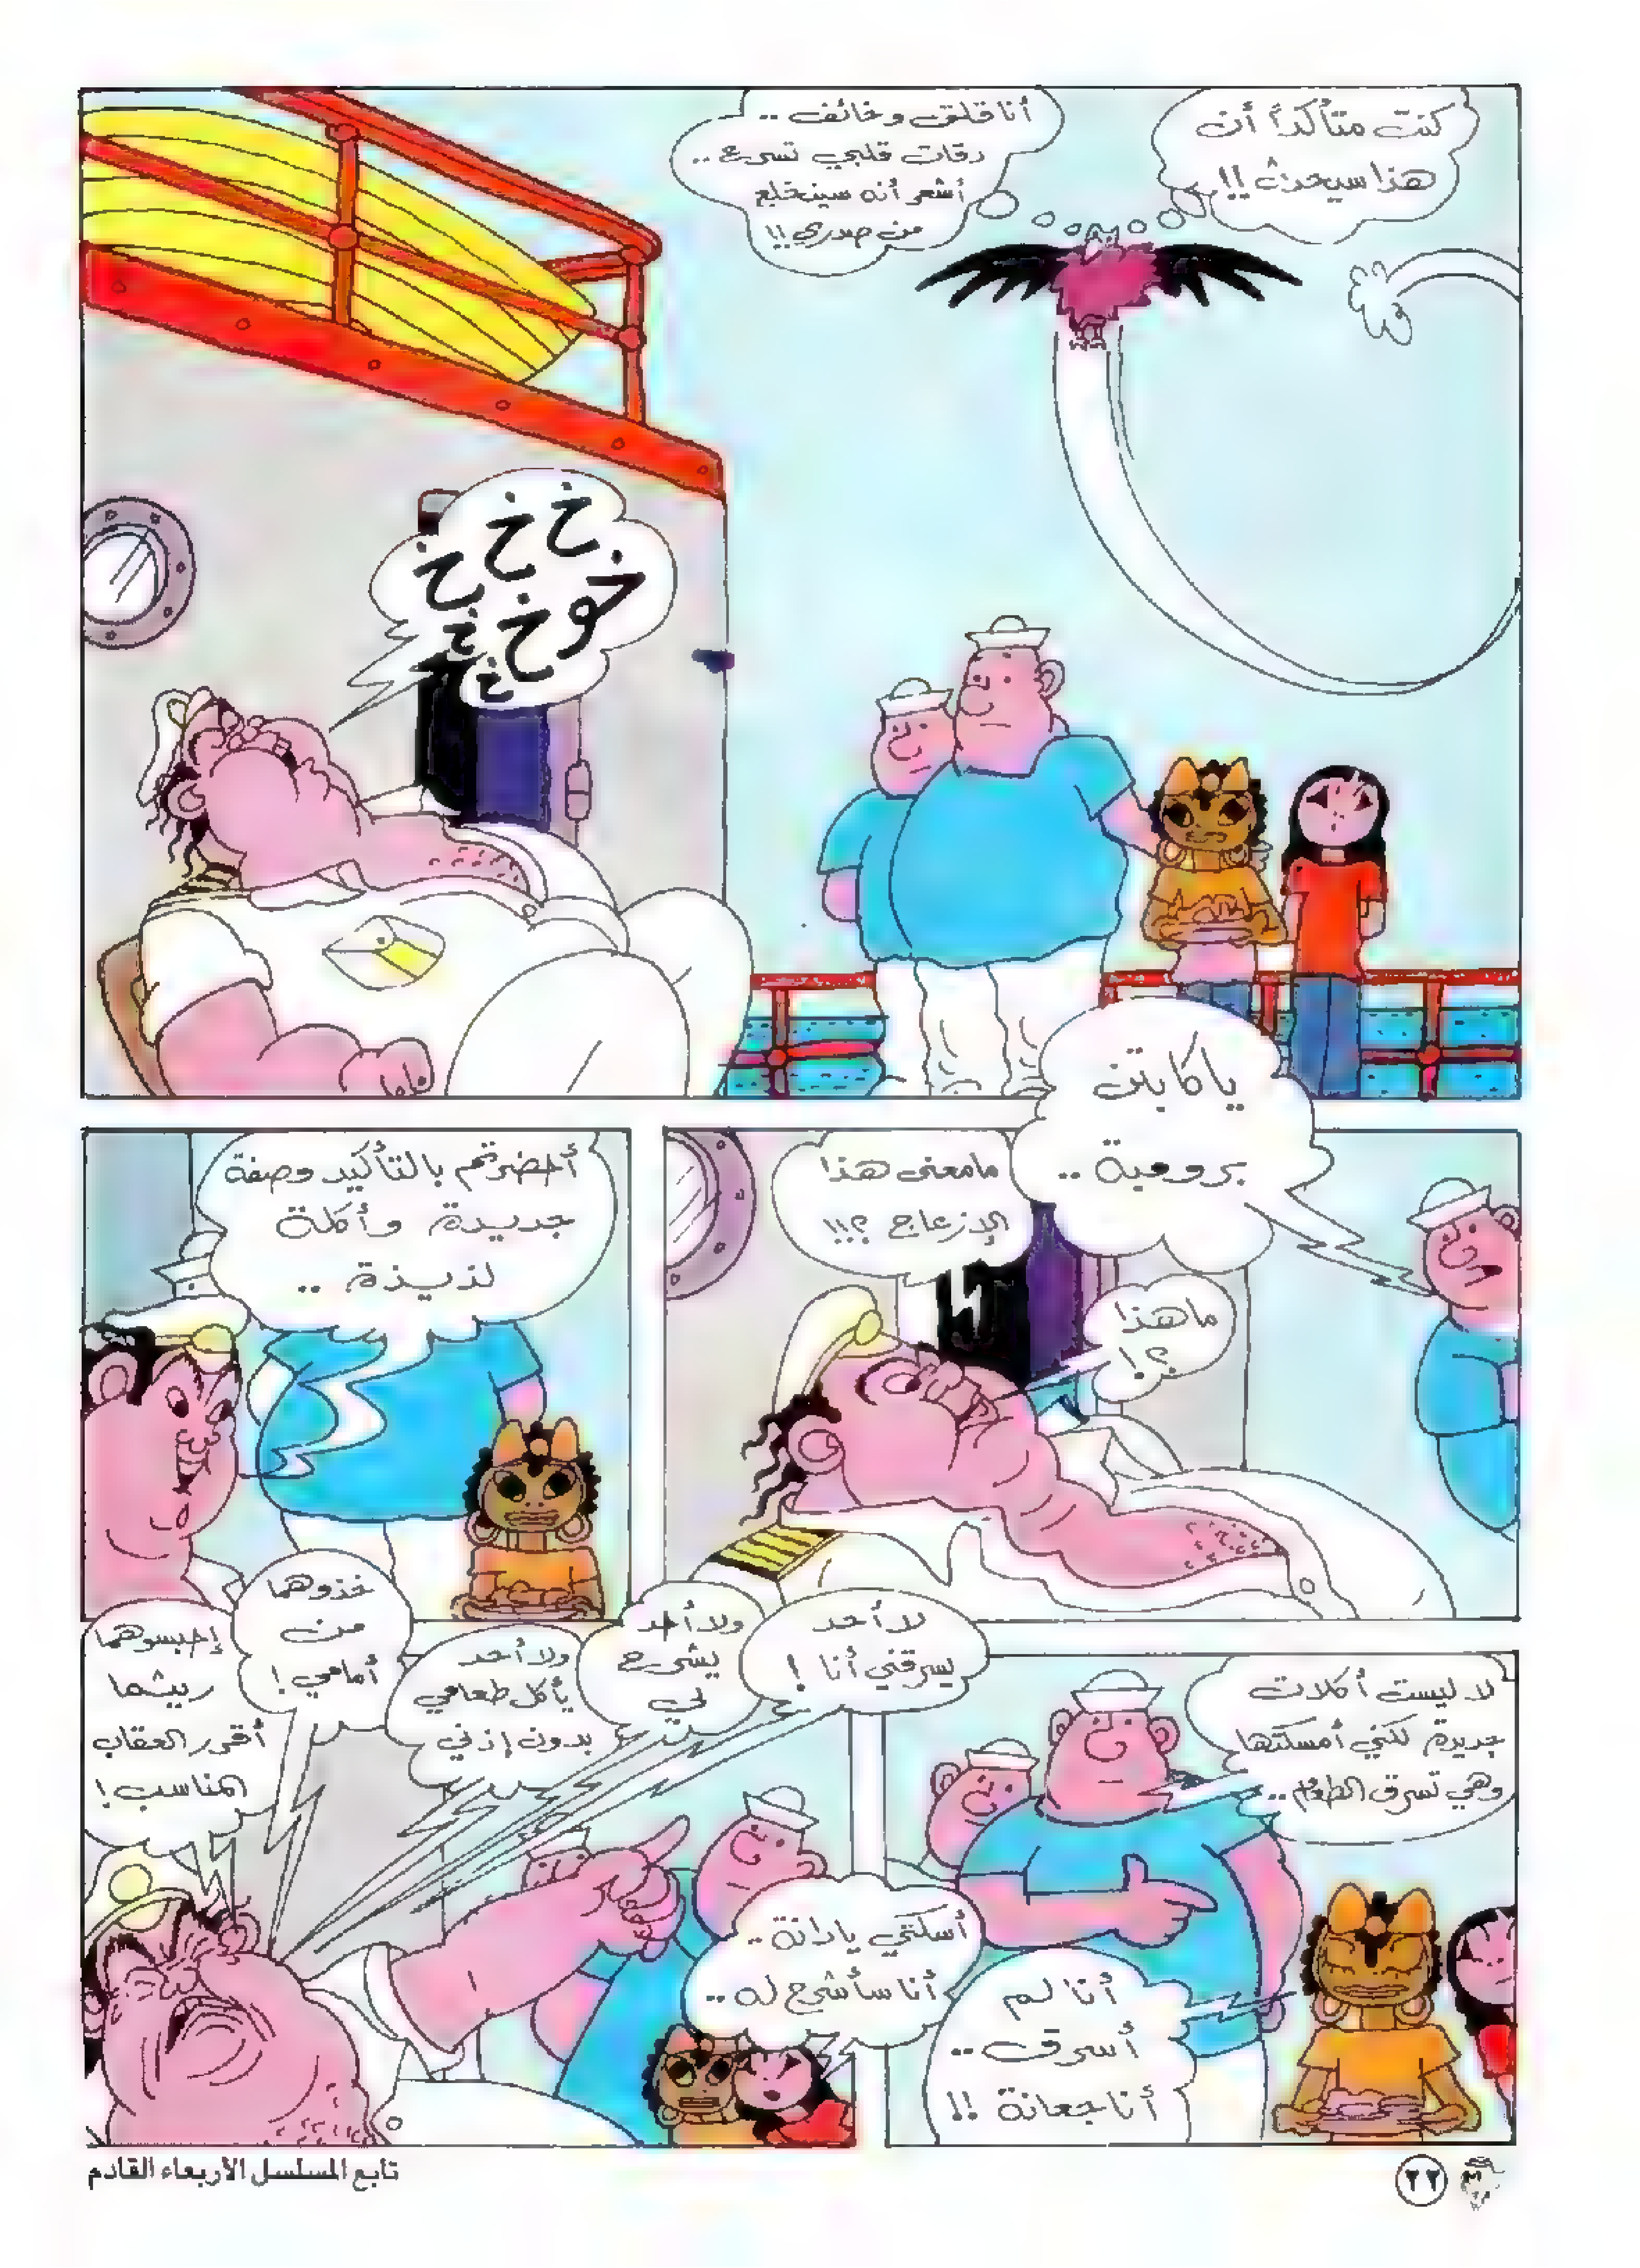 كنت متأكداً أن
هذا سيحدث !!
أنا قلق وخائف ..
دقات قلبي تسرع ..
أشعر أنه سينخلع
من صدري !!
خ خ خ
خوخ
خ خ
يا كابتن
بروعبة ..
ما معنى هذا
الإزعاج ؟!!
ما هذا
؟!
أحضرتم بالتأكيد وصفة
جديدة وأكلة
لذيذة ..
لا ليست أكلات
جديدة لكني أمسكتها
وهي تسرق الطعام ..
أنا لم
أسرق ..
أنا جعانة !!
لا أحد
يسرقني أنا !
ولا أحد
يشرح
لي
ولا أحد
يأكل طعامي
بدون إذني
خذوهما
من
أمامي !
إحبسوهما
ريثما
أقرر العقاب
المناسب !
أسكتي يا دانة ..
أنا سأشرح له ..
تابع المسلسل الأربعاء القادم
٢٢